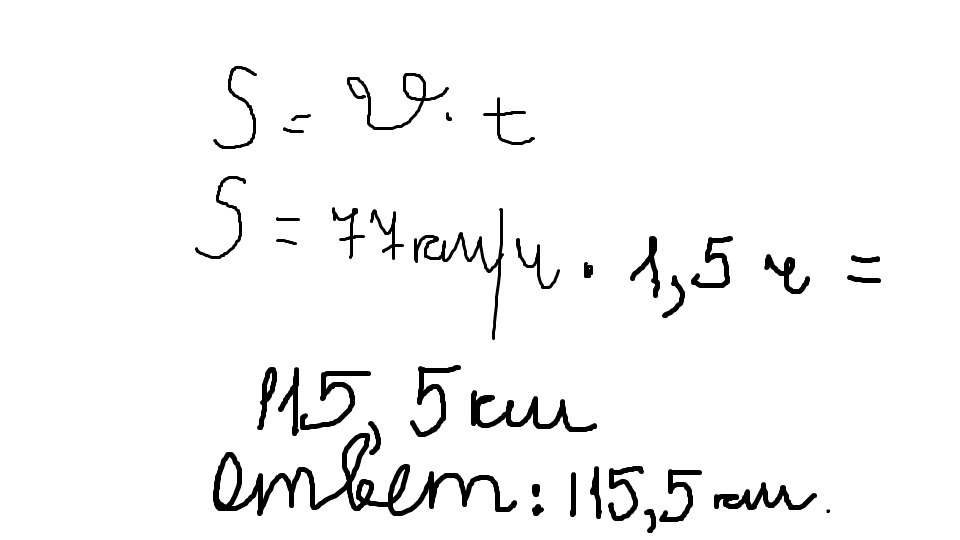 S = v · t
S = 77км/ч · 1,5 ч =
115,5 км
ответ: 115,5 км.